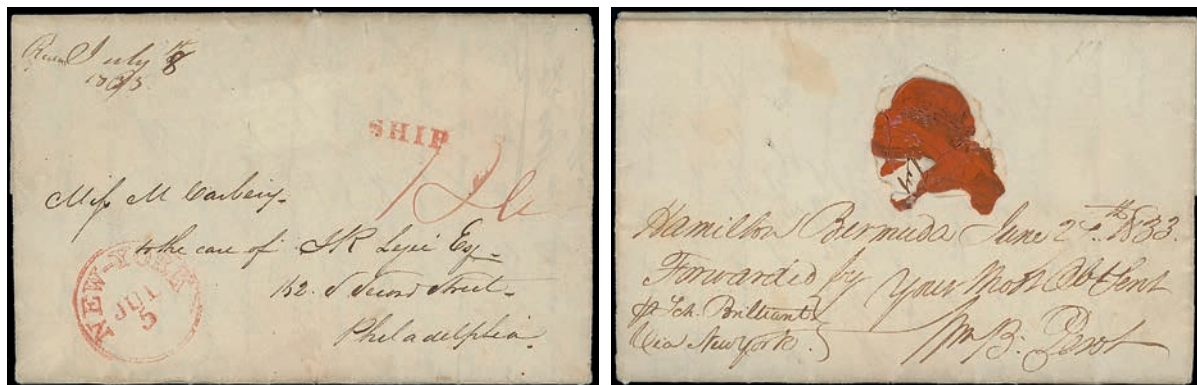 July 8th
1833
SHIP
Miss M Carbery
to the care of
152. S Second Street
Philadelphia
NEW-YORK
JUL
5
Hamilton Bermuda June 24th. 1833.
Forwarded by Your Most Obt Servt
pr Sch. Brilliant
Via New York.
Wm B: Perot